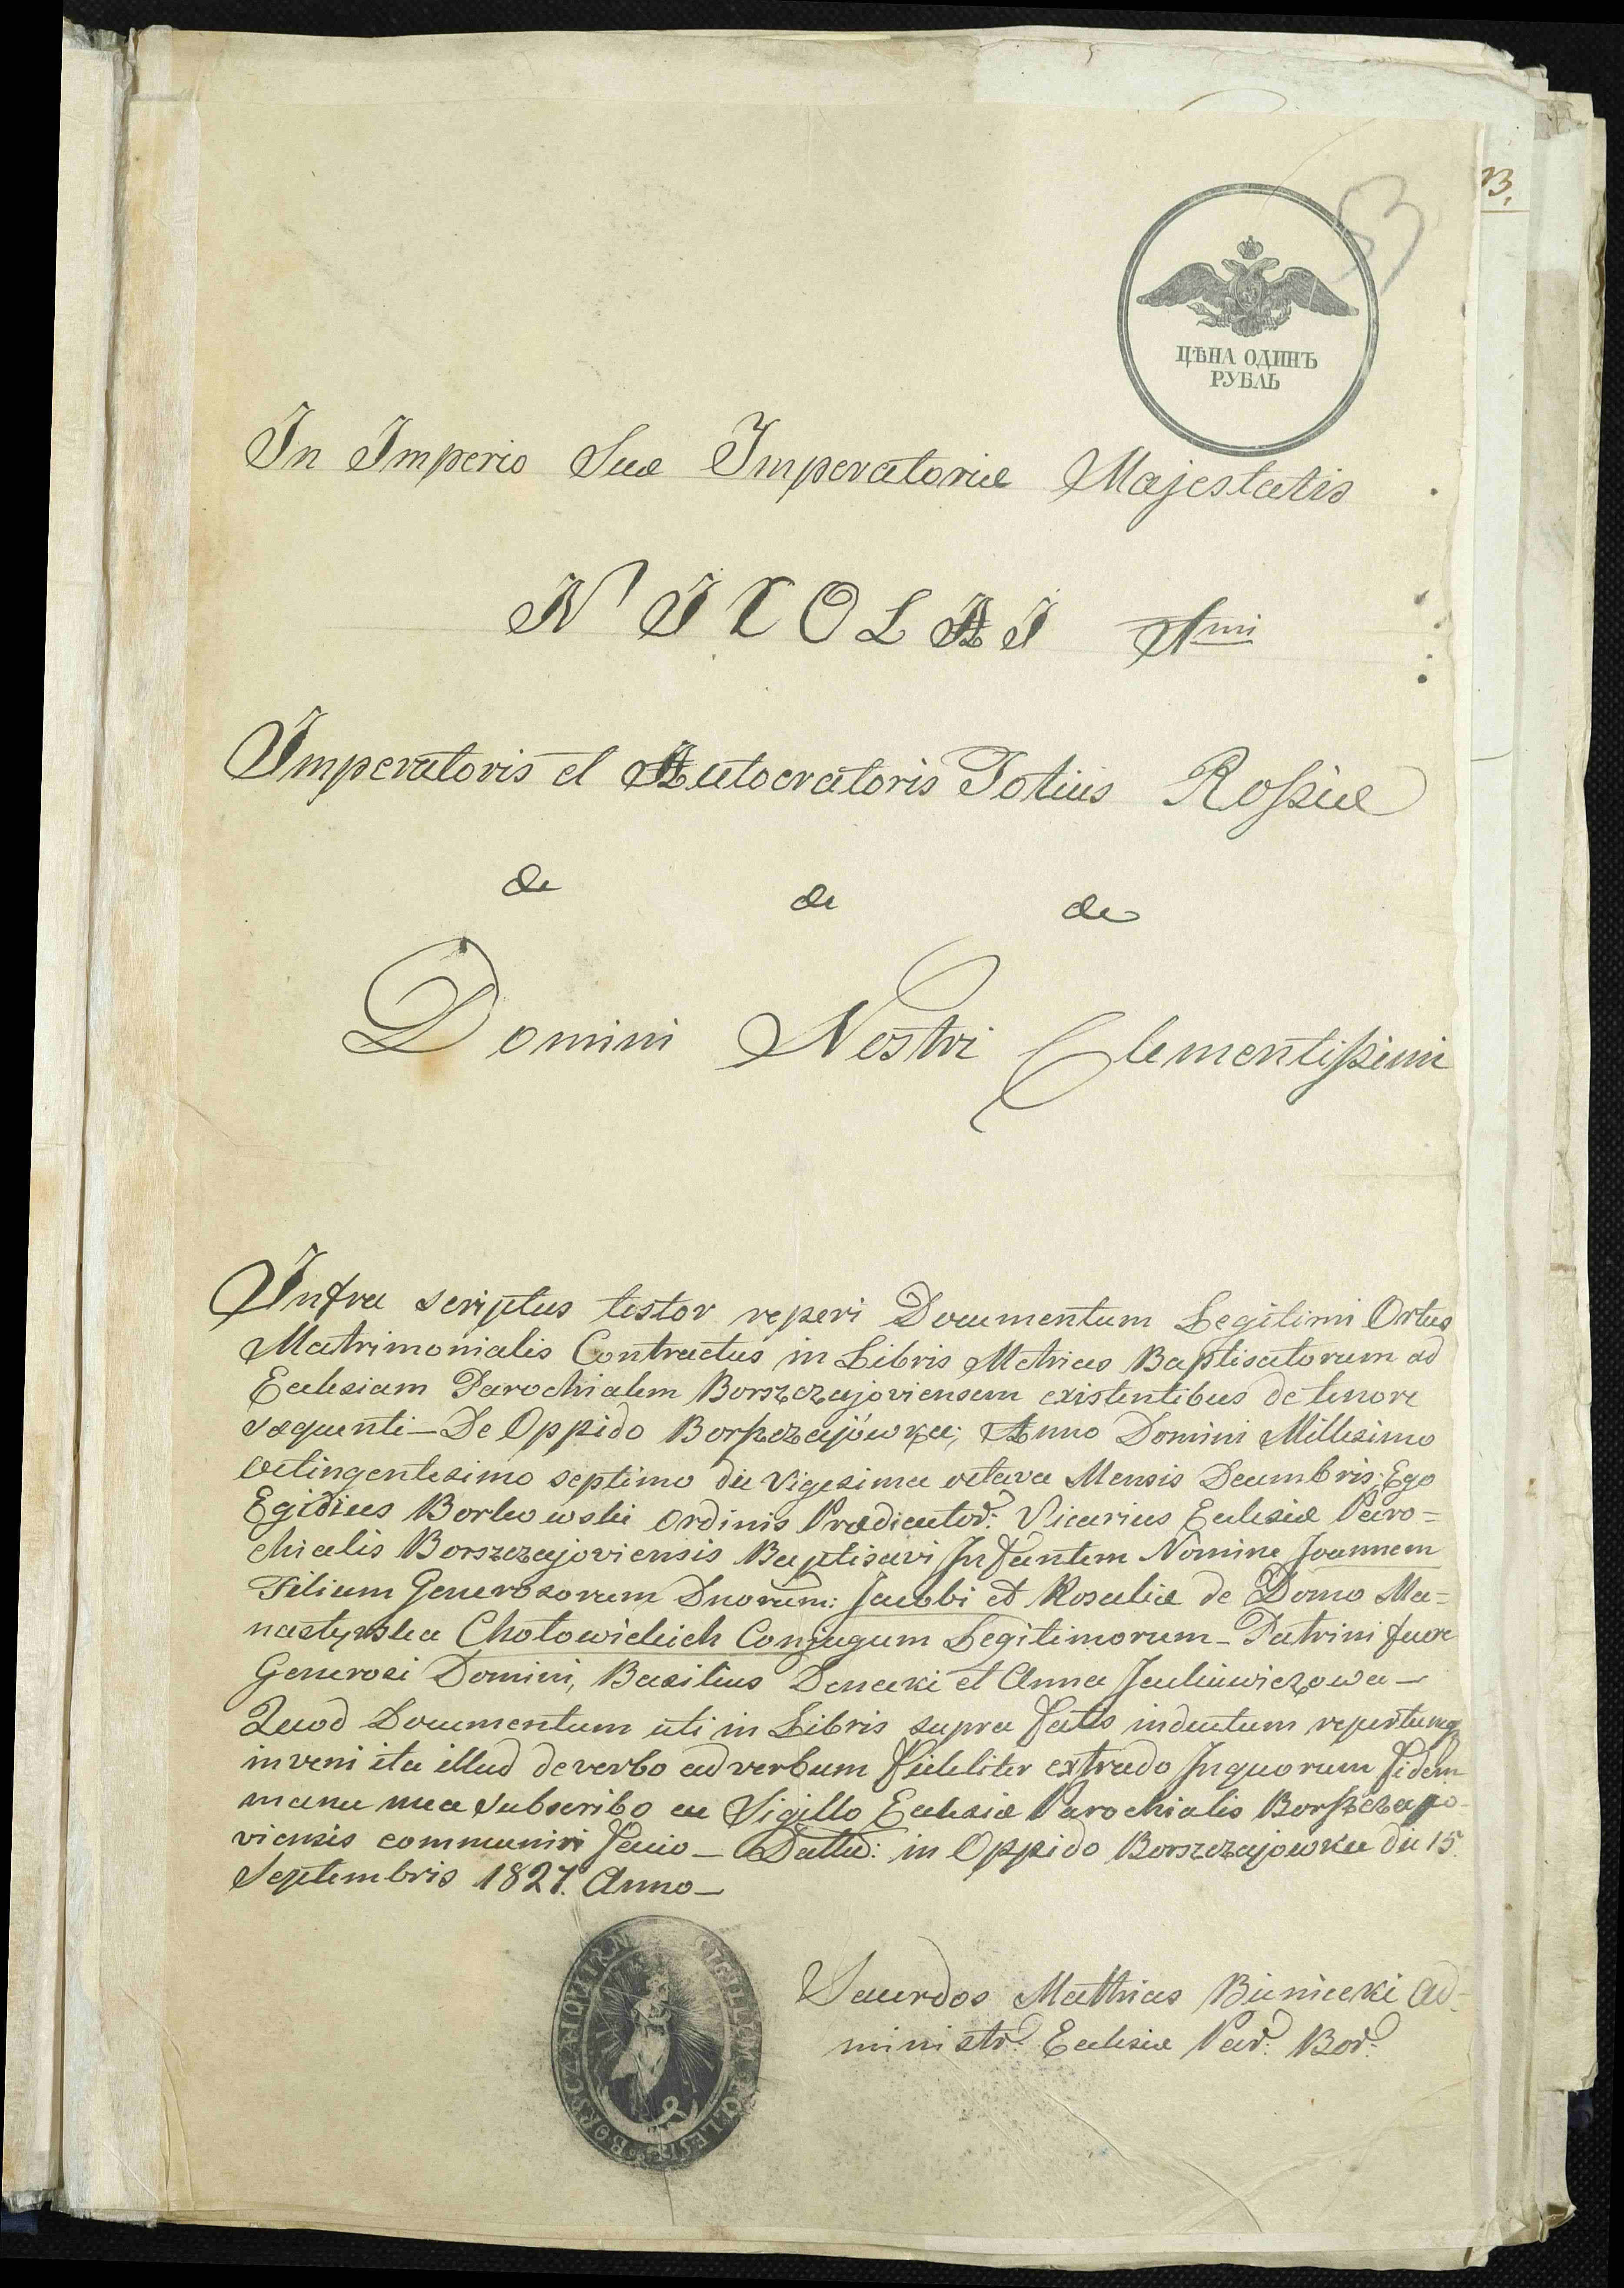 53
ЦѢНА ОДИНЪ
РУБЛЬ
In Imperio Suæ Imperatoriæ Majestatis
NICOLAI
Imperatoris et Autocratoris Totius Rossiæ
&c &c &c
Domini Nostri Clementissimi
Infra scriptus testor reperi Documentum Legitimi Ortus
Matrimonialis Contractus in Libris Metrices Baptisatorum ad
Eclesiam Parochialem Borszczajoviensem existentibus de tenore
sæquenti — De Oppido Borszczajówka; Anno Domini Millesimo
octingentesimo septimo die Vigesima octava Mensis Decembris. Ego
Egidius Borkowski Ordinis Prædicator: Vicarius Eclesiæ Paro=
chialis Borszczajoviensis Baptisavi Infantem Nomine Joannem
Filium Generosorum Dnorum: Jacobi et Rosaliæ de Domo Ma=
nastyrska Chołowickich Conjugum Legitimorum — Patrini fuere
Generosi Domini, Basilius Donecki et Anna —
Quod Documentum uti in Libris supra inductum
inveni ita illud de verbo ad verbum fideliter extrado Inquorum fidem
manu mea subscribo ac Sigillo Eclesiæ Parochialis Borszczajo=
viensis communiri facio — Datud: in Oppido Borszczajowka die 15.
Septembris 1827. Anno —
SIGILLUM ECCLESIÆ BORSCZAIOVIEN
Sacerdos Mathias Biniecki Ad=
ministr: Eclesiæ Par: Bor: